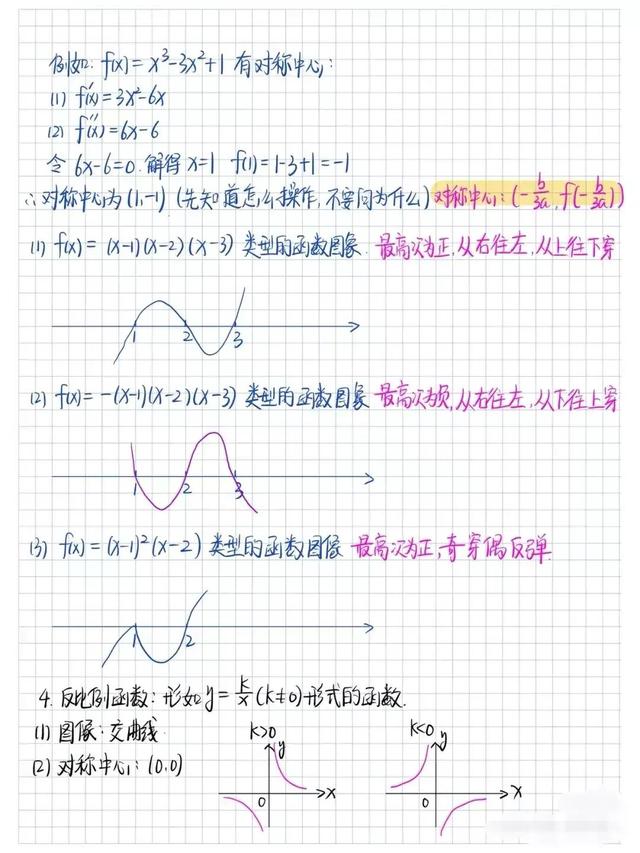 例如: f(x) = x³-3x²+1 有对称中心:
(1) f'(x) = 3x²-6x
(2) f''(x) = 6x-6
令 6x-6=0. 解得 x=1 f(1)=1-3+1=-1
∴对称中心为(1,-1) (先知道怎么操作,不要问为什么) 对称中心: (-b/3a, f(-b/3a))
(1) f(x) = (x-1)(x-2)(x-3) 类型的函数图象. 最高次为正,从右往左,从上往下穿
1 2 3
(2) f(x) = -(x-1)(x-2)(x-3) 类型的函数图象 最高次为负,从右往左,从下往上穿
1 2 3
(3) f(x) = (x-1)²(x-2) 类型的函数图像 最高次为正,奇穿偶反弹.
1 2
4. 反比例函数: 形如 y = k/x (k≠0) 形式的函数.
(1) 图像: 交曲线 k>0 k<0
y y
(2) 对称中心: (0,0)
0 x 0 x